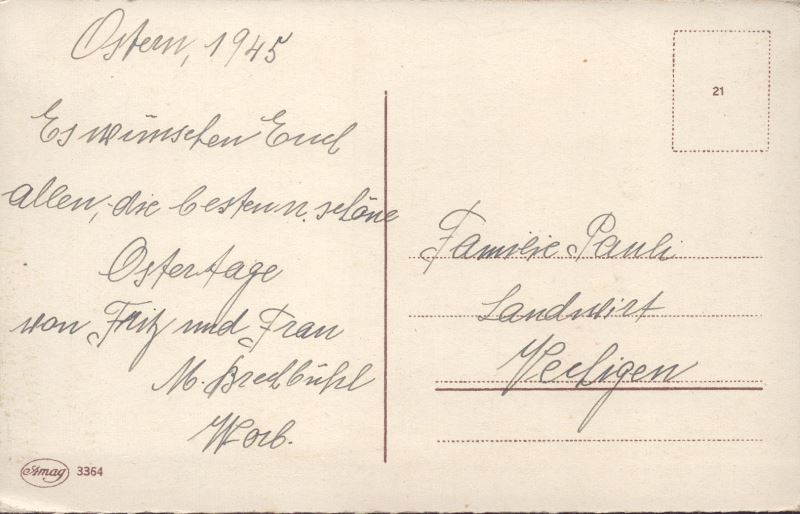 Ostern, 1945
Es wünschen Euch
allen, die besten u. schöne
Ostertage
von Fritz und Frau
M. Brechbühl
Worb.
21
Familie Pauli
Landwirt
Vechigen
Amag 3364